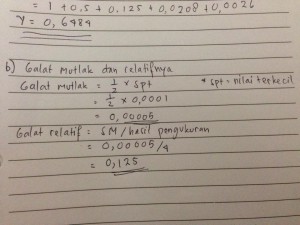 = 1 + 0,5 + 0,125 + 0,0208 + 0,0026
Y = 0,6484
b) Galat Mutlak dan relatifnya
Galat Mutlak = 1/2 x spt
* spt = nilai terkecil
= 1/2 x 0,0001
= 0,00005
Galat relatif = SM/hasil pengukuran
= 0,00005/4
= 0,125